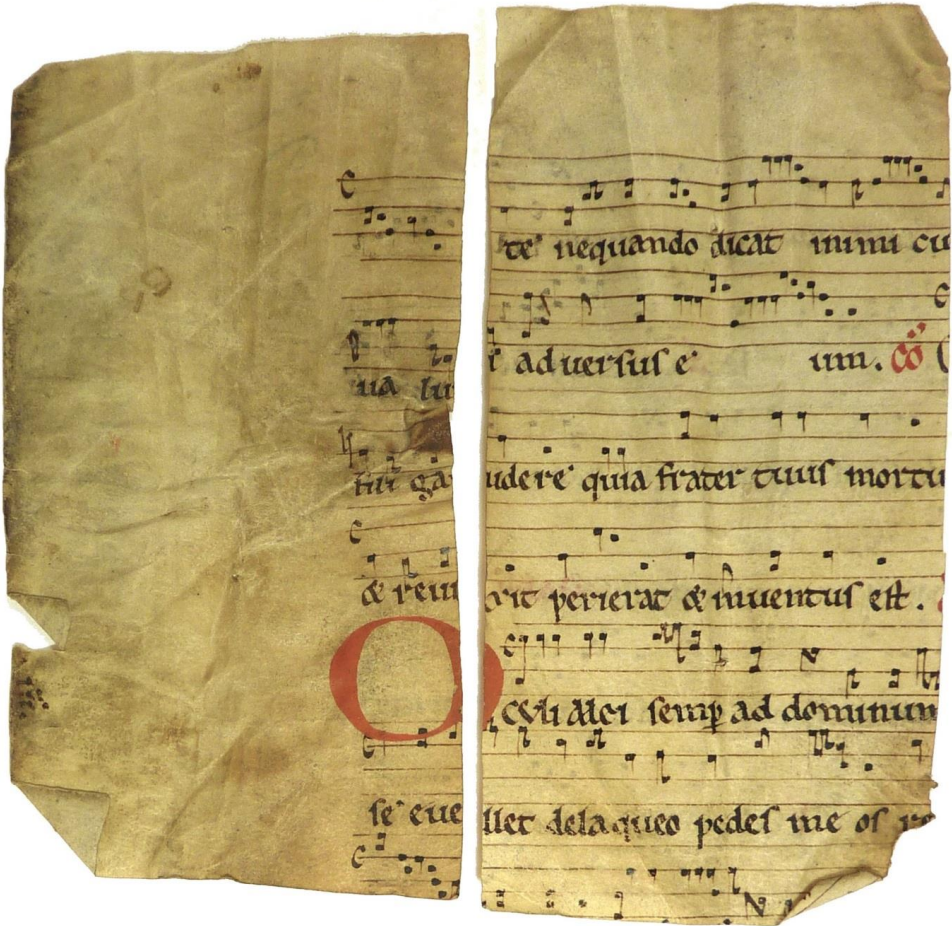 te nequando dicat inimi cu
ua lu adversus e um. Cō
fili gaudere quia frater tuus mortu
& reuixit perierat & inuentus est.
Oculi Mei semp ad dominum
se euellet delaqueo pedes me os re